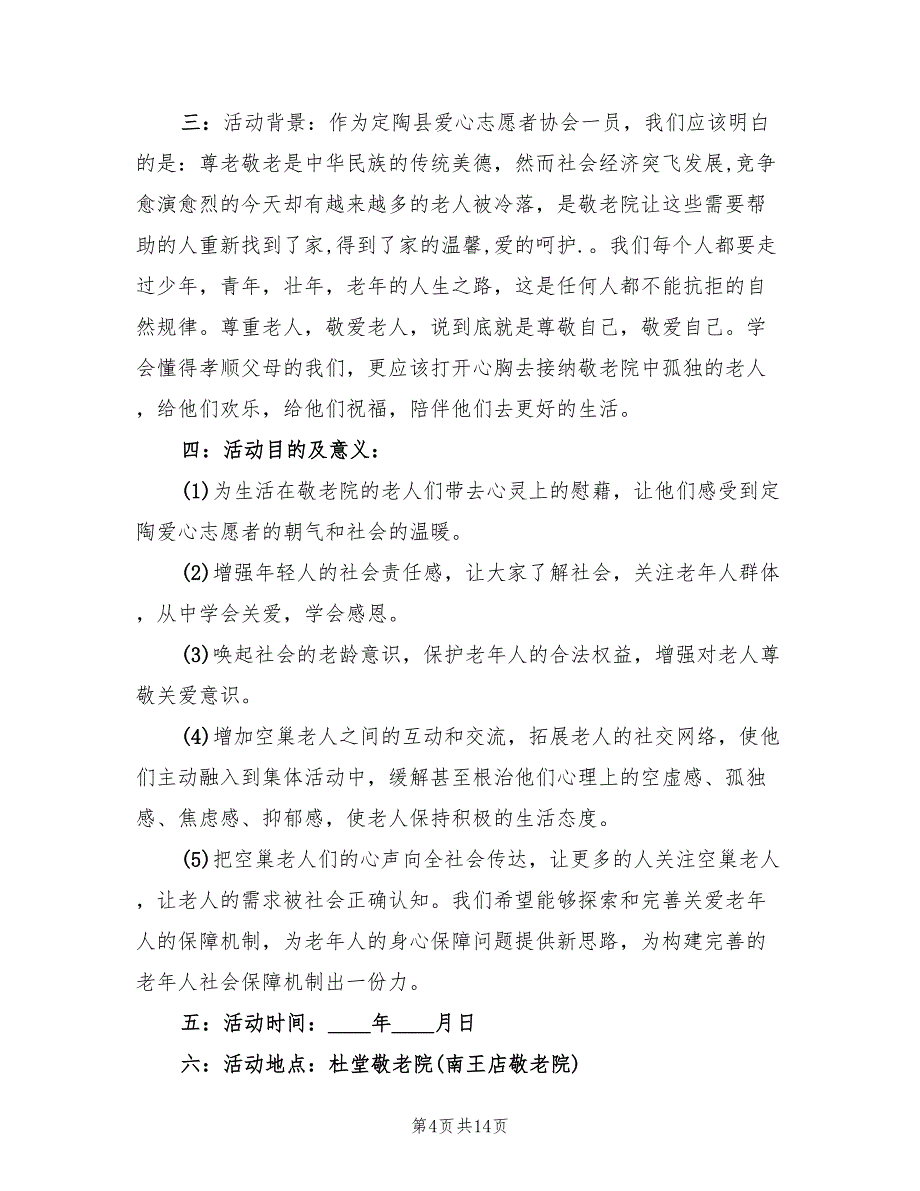 三：活动背景：作为定陶县爱心志愿者协会一员，我们应该明白
的是：尊老敬老是中华民族的传统美德，然而社会经济突飞发展,竞争
愈演愈烈的今天却有越来越多的老人被冷落，是敬老院让这些需要帮
助的人重新找到了家,得到了家的温馨,爱的呵护.。我们每个人都要走
过少年，青年，壮年，老年的人生之路，这是任何人都不能抗拒的自
然规律。尊重老人，敬爱老人，说到底就是尊敬自己，敬爱自己。学
会懂得孝顺父母的我们，更应该打开心胸去接纳敬老院中孤独的老人
，给他们欢乐，给他们祝福，陪伴他们去更好的生活。
四：活动目的及意义：
(1)为生活在敬老院的老人们带去心灵上的慰藉，让他们感受到定
陶爱心志愿者的朝气和社会的温暖。
(2)增强年轻人的社会责任感，让大家了解社会，关注老年人群体
，从中学会关爱，学会感恩。
(3)唤起社会的老龄意识，保护老年人的合法权益，增强对老人尊
敬关爱意识。
(4)增加空巢老人之间的互动和交流，拓展老人的社交网络，使他
们主动融入到集体活动中，缓解甚至根治他们心理上的空虚感、孤独
感、焦虑感、抑郁感，使老人保持积极的生活态度。
(5)把空巢老人们的心声向全社会传达，让更多的人关注空巢老人
，让老人的需求被社会正确认知。我们希望能够探索和完善关爱老年
人的保障机制，为老年人的身心保障问题提供新思路，为构建完善的
老年人社会保障机制出一份力。
五：活动时间：____年____月日
六：活动地点：杜堂敬老院(南王店敬老院)
第4页共14页